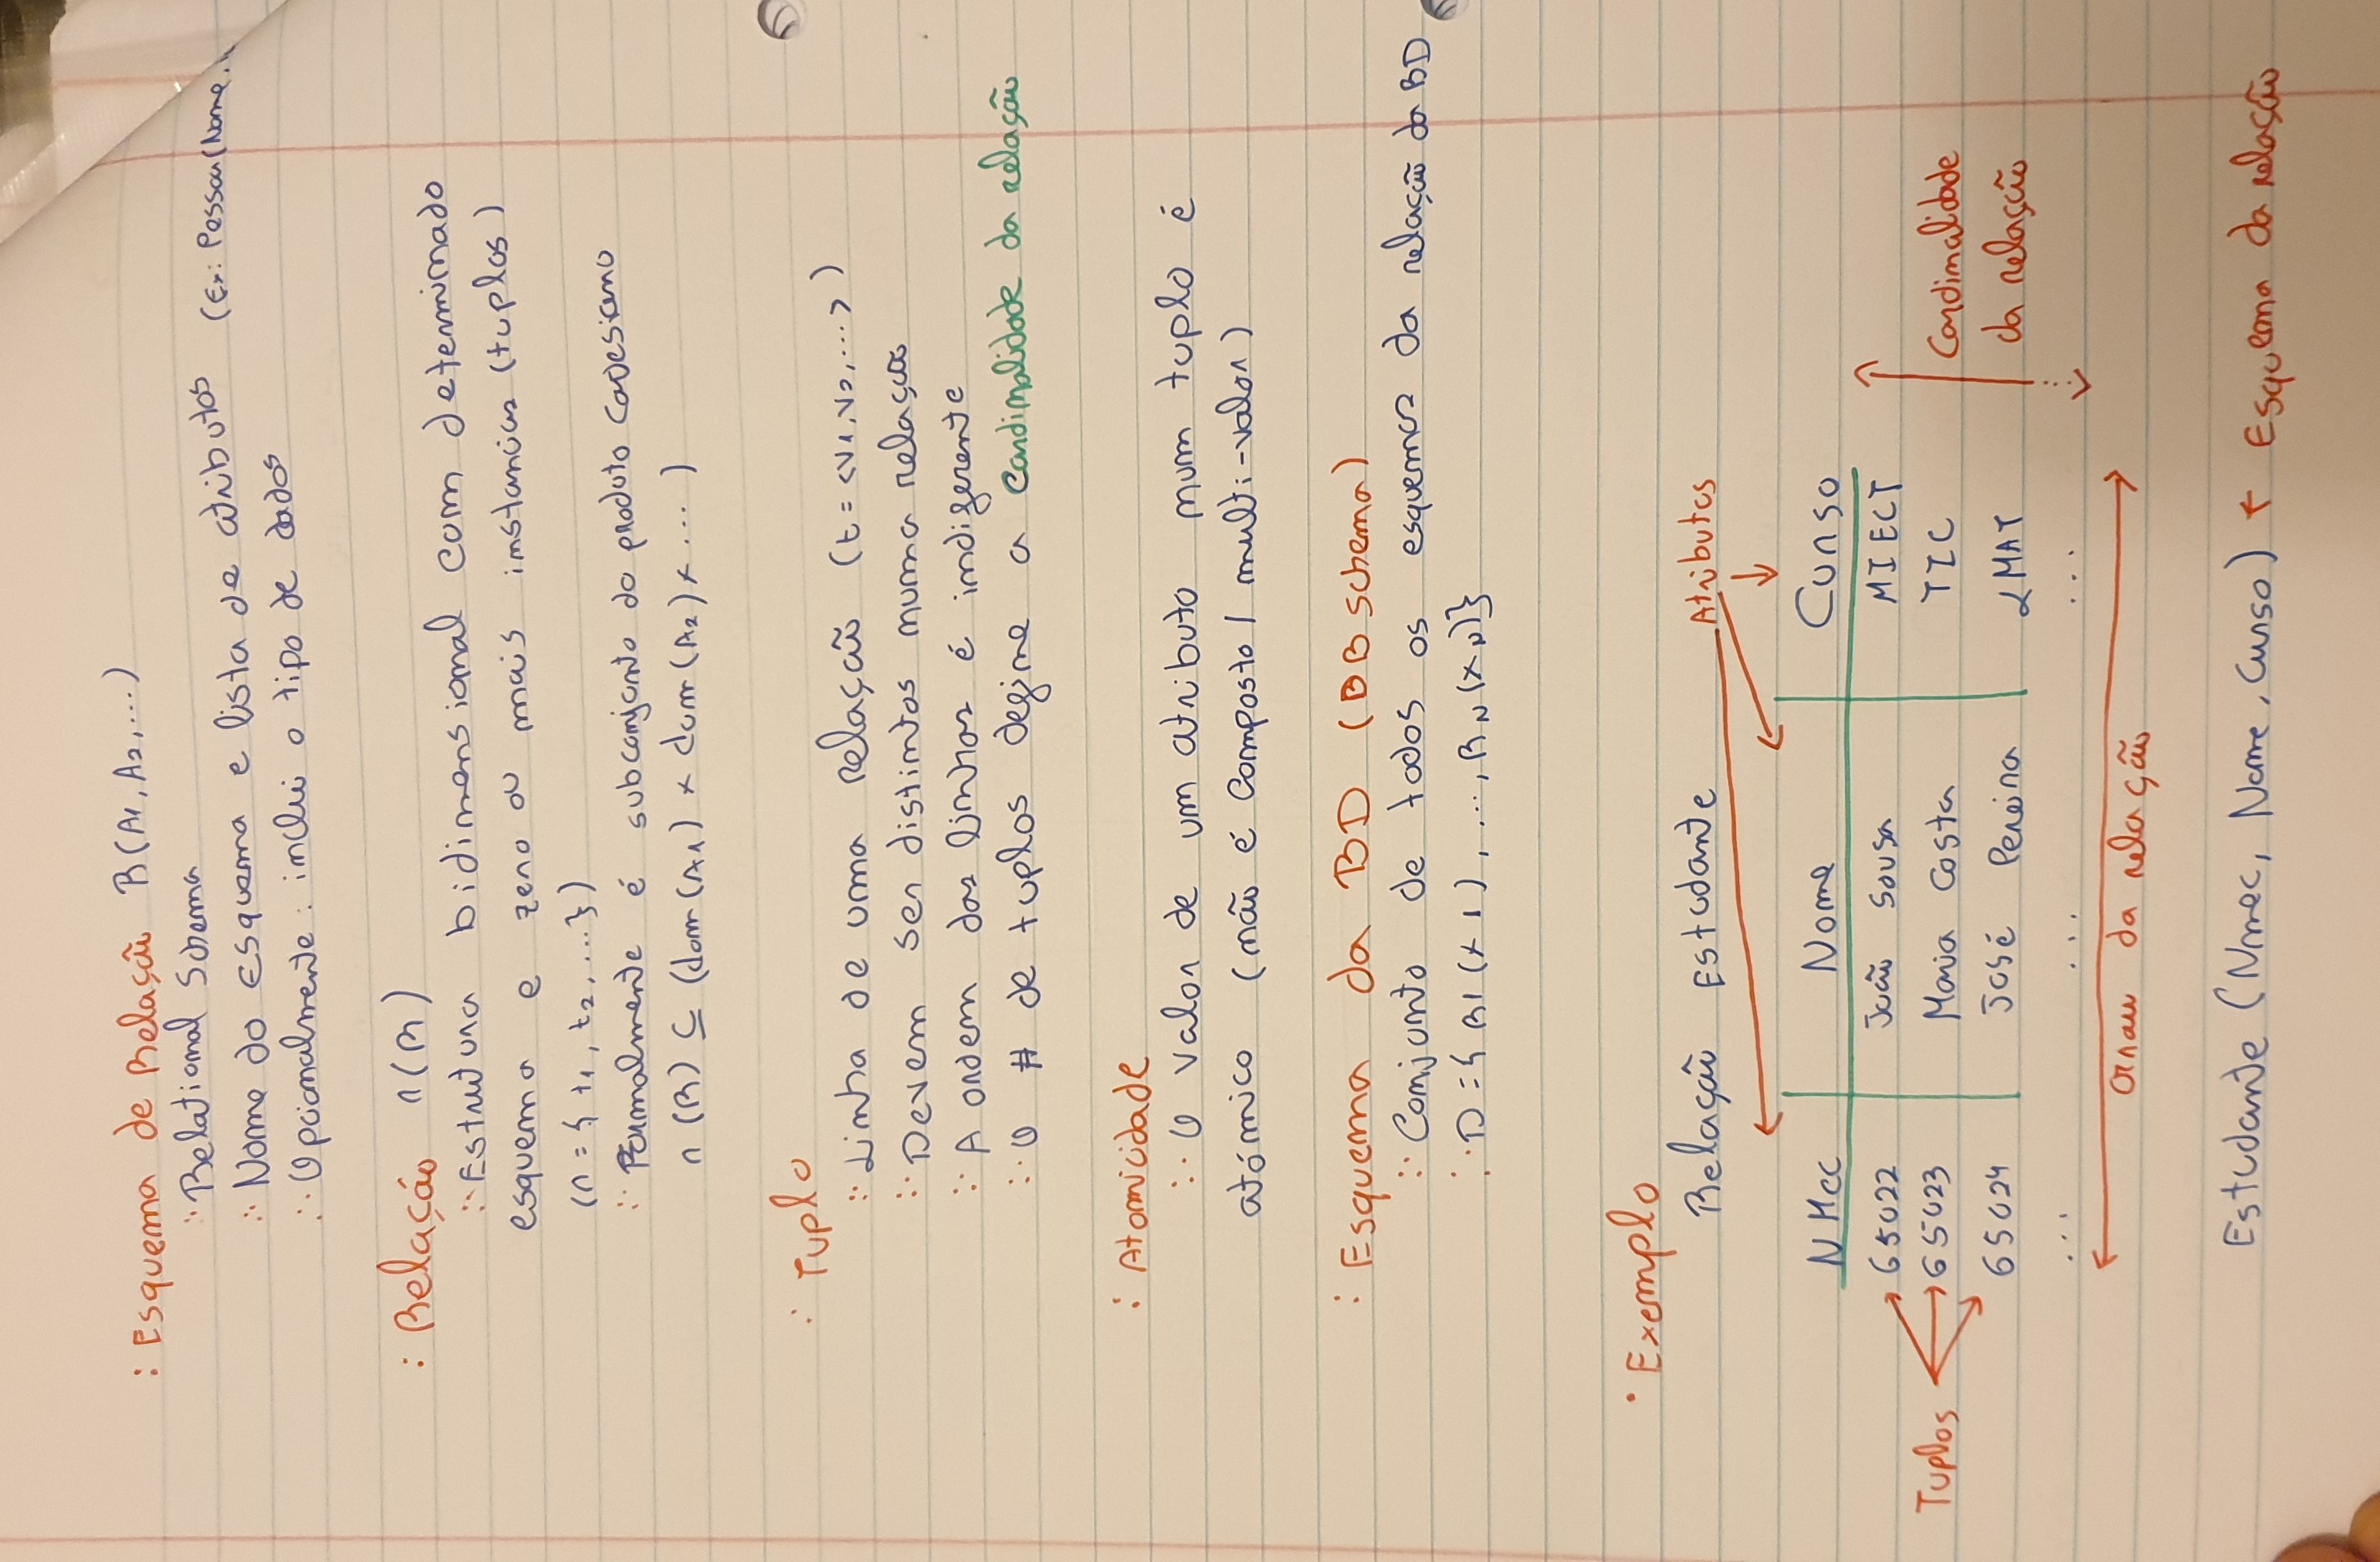 : Esquema de Relação R(A1, A2, ...)
:· Relational Schema
:· Nome do Esquema e lista de atributos (Ex: Pessoa(Nome,
:· Opcionalmente: inclui o tipo de dados
: Relação r(R)
:· Estrutura bidimensional com determinado
esquema e zero ou mais instancias (tuplos)
(r = { t1, t2, ...})
:· Formalmente é subconjunto do produto cartesiano
r(R) ⊆ (dom(A1) × dom(A2) × ...)
: Tuplo
:· Linha de uma relação (t = <v1, v2, ...>)
:· Devem ser distintos numa relação
:· A ordem das linhas é indiferente
:· O # de tuplos define a cardinalidade da relação
: Atomicidade
:· O valor de um atributo num tuplo é
atómico (não é composto / multi-valor)
: Esquema da BD (DB schema)
:· Conjunto de todos os esquemas da relação da BD
:· D = { R1(x1), ..., RN(xN)}
· Exemplo
Relação Estudante Atributos
NMec Nome Curso
65022 João Sousa MIECT
Tuplos 65023 Maria Costa TIC Cardinalidade
65024 José Pereira LMAT da relação
... ... ...
Grau da relação
Estudante (Nmec, Nome, Curso) ← Esquema da relação